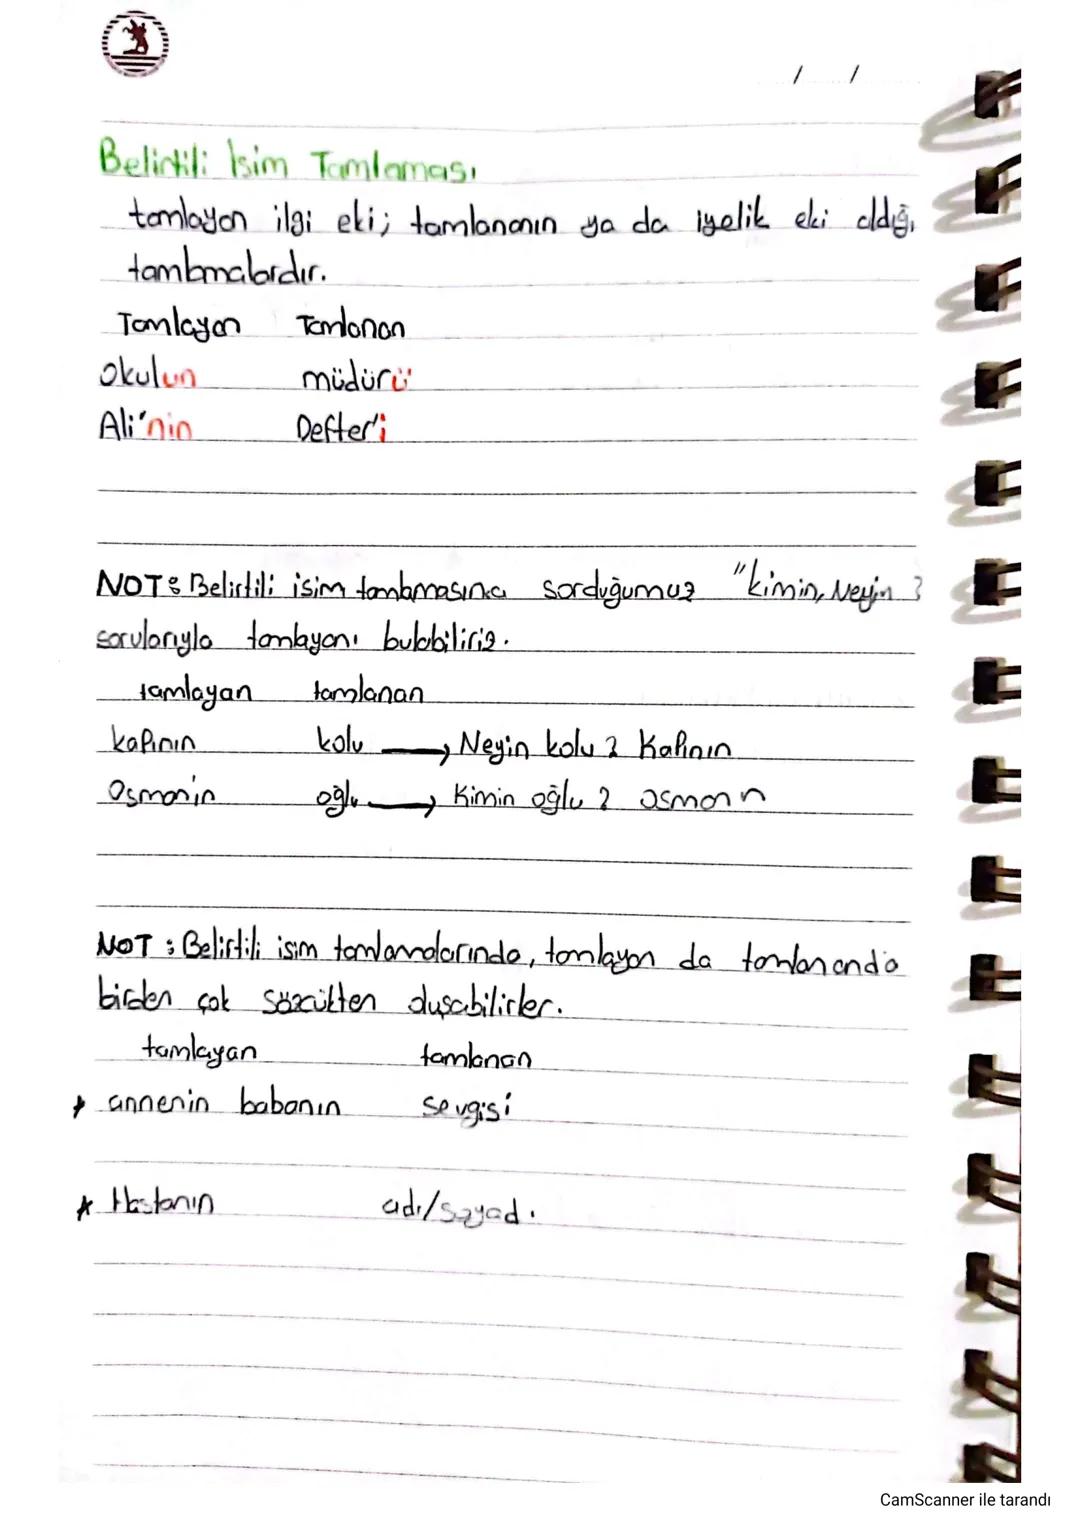 / /
Belirtili İsim Tamlaması
tamlayan ilgi eki; tamlananın ya da iyelik eki aldığı
tamlamalardır.
Tamlayan Tamlanan
Okulun müdürü
Ali'nin Defter'i
NOT: Belirtili isim tamlamasına sorduğumuz "kimin, Neyin?
sorularıyla tamlayanı bulabiliriz.
tamlayan tamlanan
kapının kolu → Neyin kolu? Kapının
Osman'ın oğlu → Kimin oğlu? Osmanın
NOT: Belirtili isim tamlamalarında, tamlayan da tamlananda
birden çok sözcükten oluşabilirler.
tamlayan tamlanan
* annenin babanın sevgisi
* Hastanın adı/soyadı
CamScanner ile tarandı